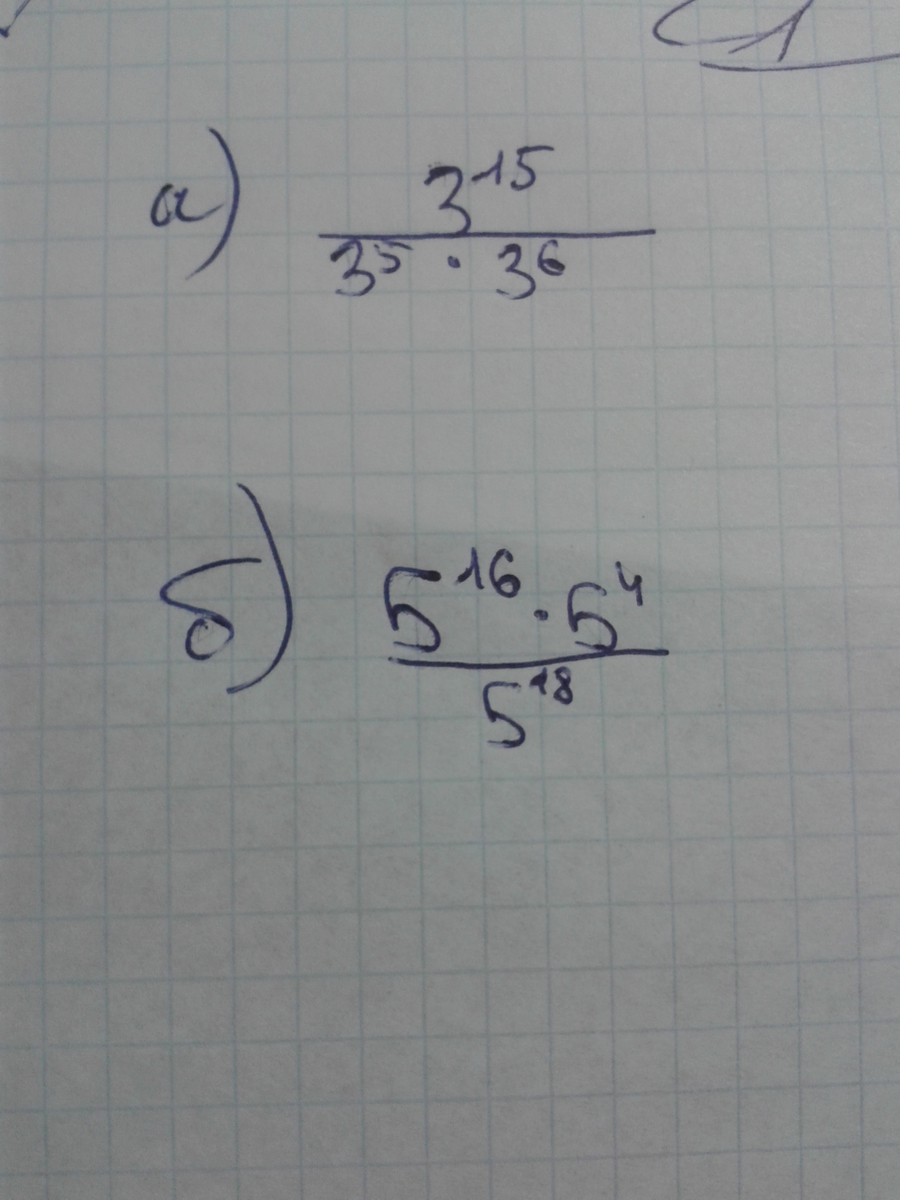 а) 3^15 / (3^5 · 3^6)
б) (5^16 · 5^4) / 5^18